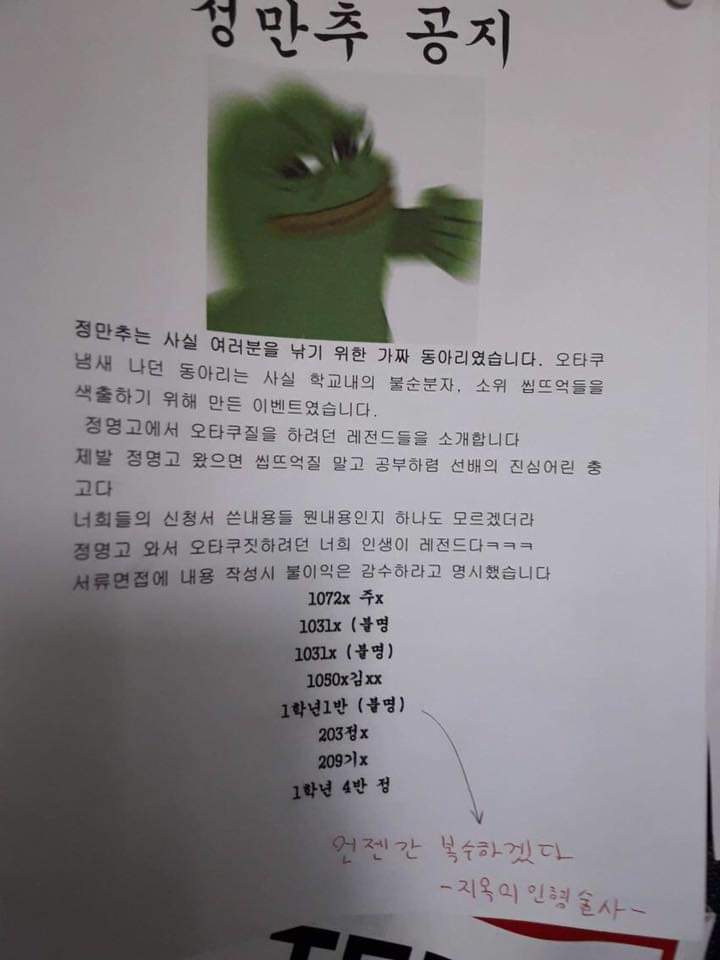 정만추 공지
정만추는 사실 여러분을 낚기 위한 가짜 동아리였습니다. 오타쿠
냄새 나던 동아리는 사실 학교내의 불순분자, 소위 씹뜨억들을
색출하기 위해 만든 이벤트였습니다.
정명고에서 오타쿠질을 하려던 레전드들을 소개합니다
제발 정명고 왔으면 씹뜨억질 말고 공부하렴 선배의 진심어린 충
고다
너희들의 신청서 쓴내용들 뭔내용인지 하나도 모르겠더라
정명고 와서 오타쿠짓하려던 너희 인생이 레전드다ㅋㅋㅋ
서류면접에 내용 작성시 불이익은 감수하라고 명시했습니다
1072x 주x
1031x (불명
1031x (불명)
1050x김xx
1학년1반 (불명)
203정x
209기x
1학년 4반 정
언젠간 복수하겠다
-지옥의 인형술사-